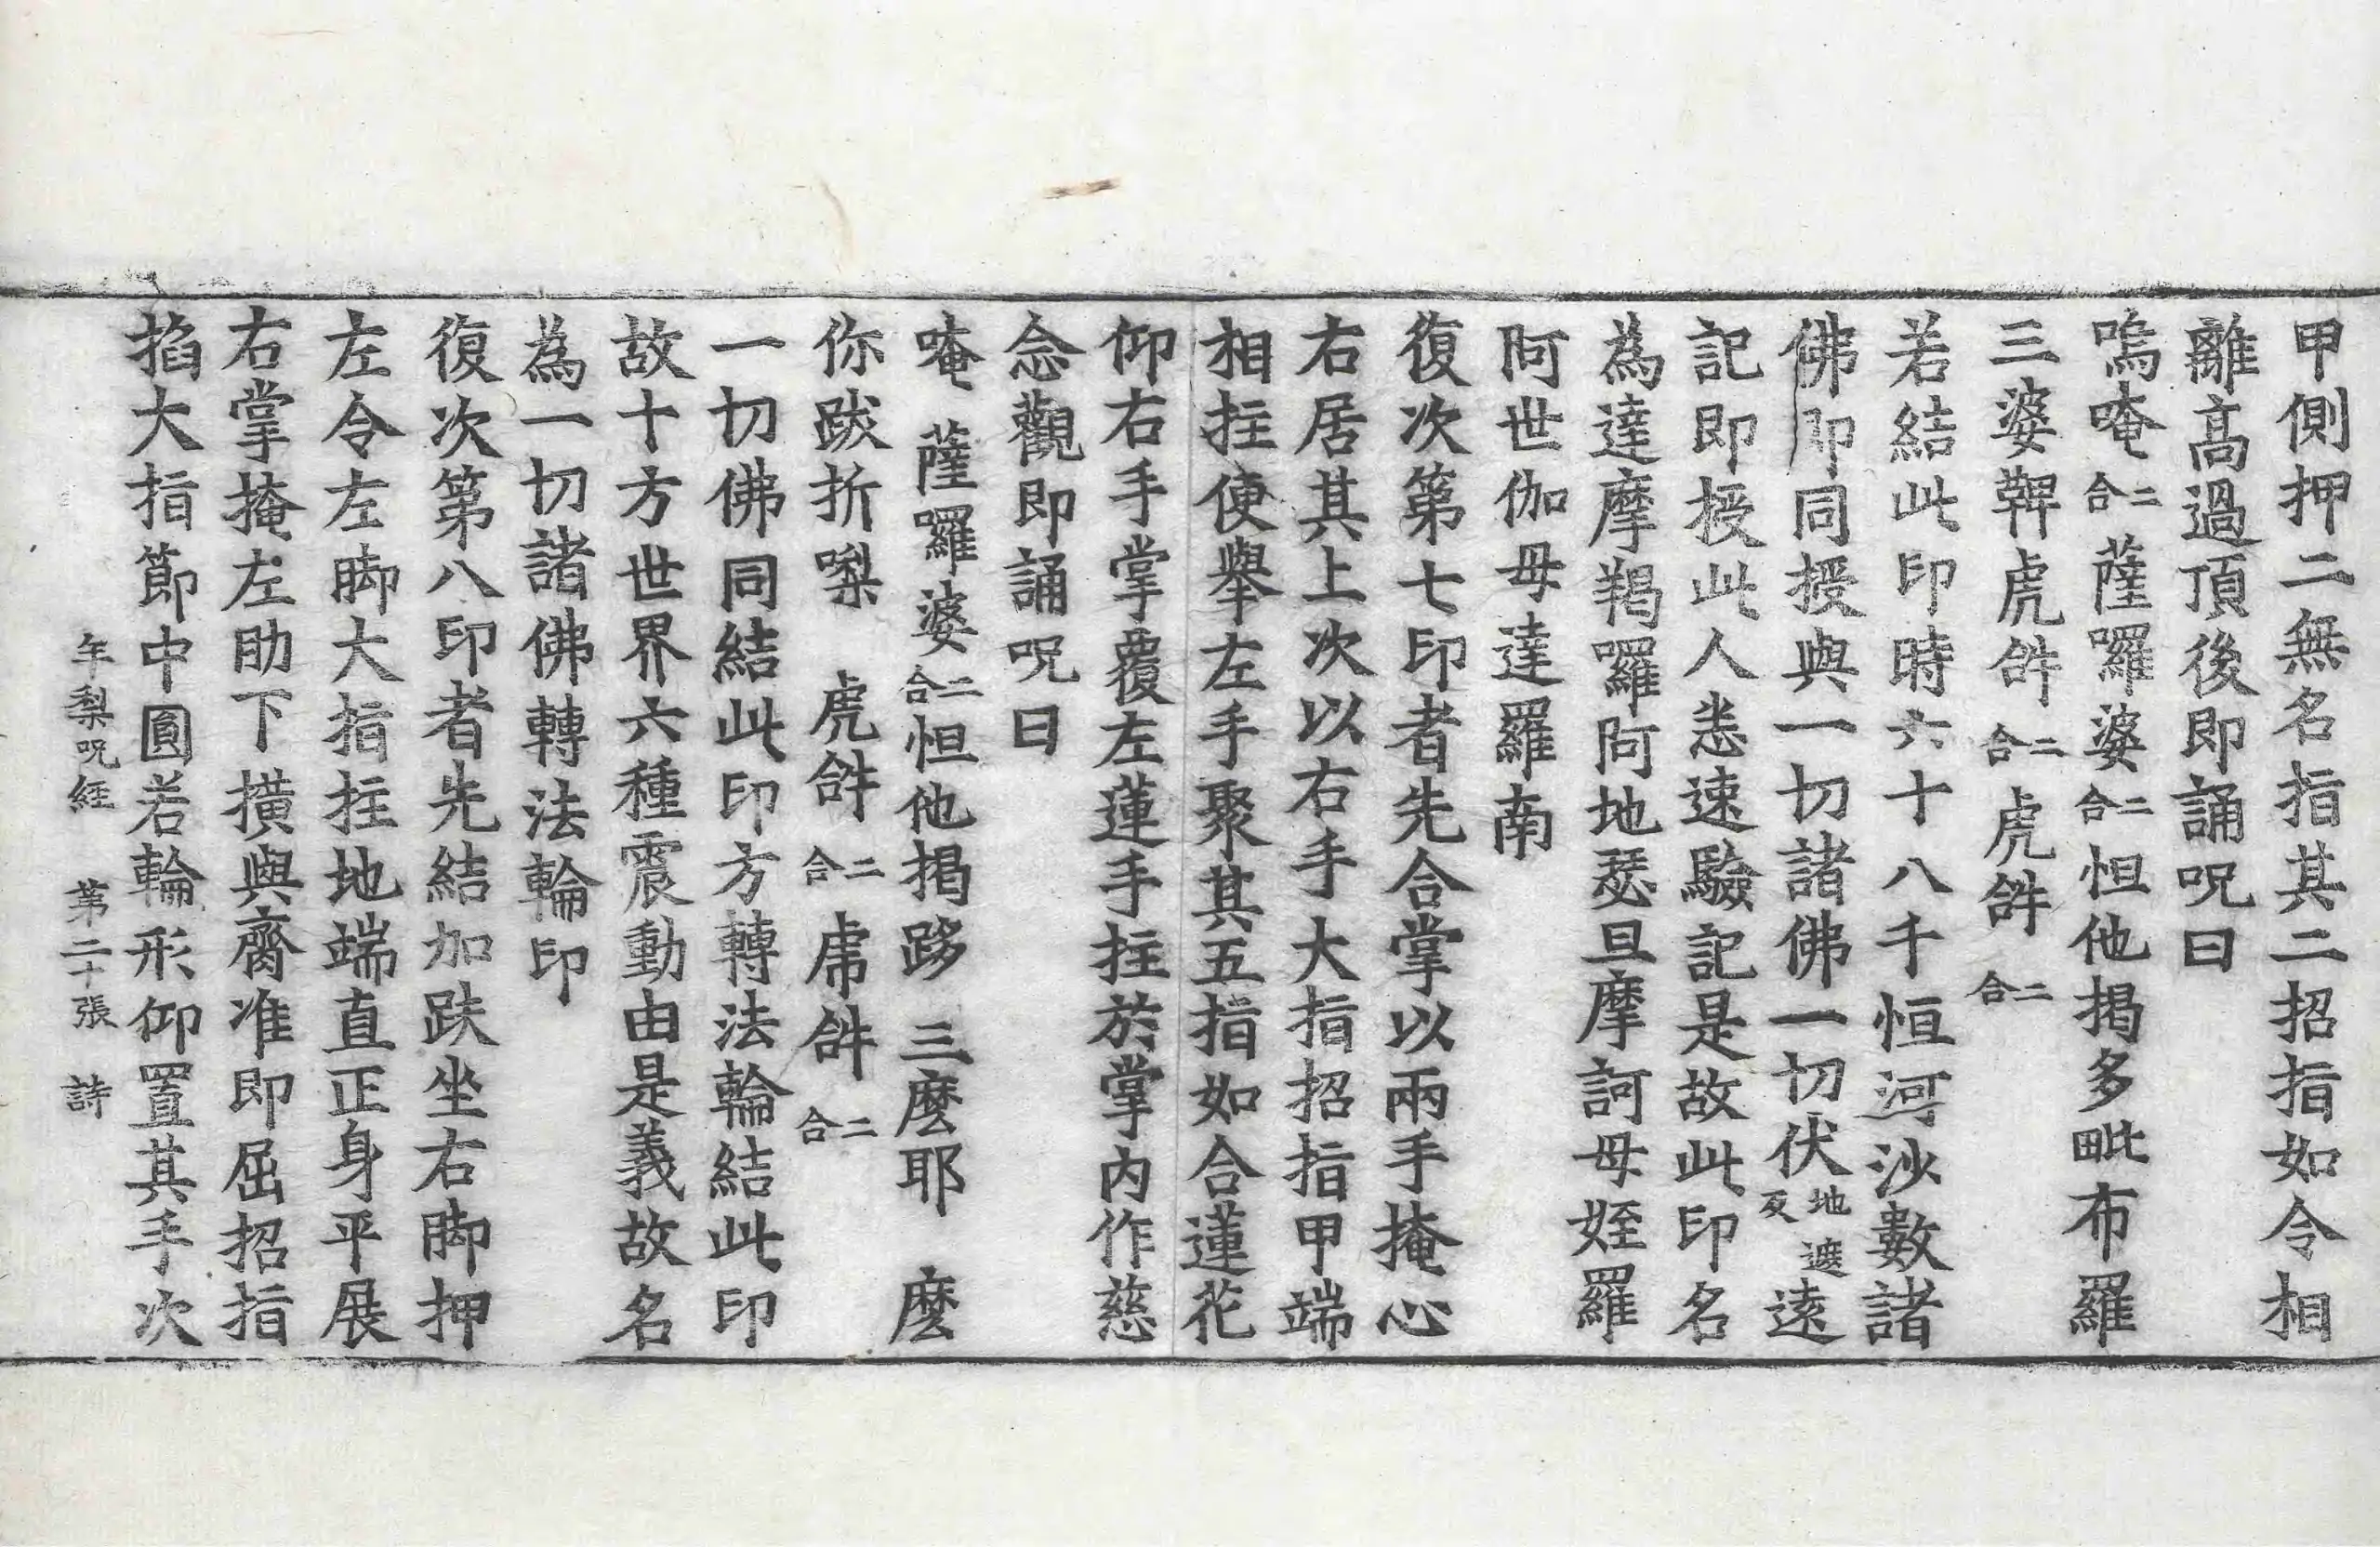 甲側押二無名指其二招指如令相
離高過頂後即誦呪曰
嗚唵二合薩囉婆二合怛他揭多毗布羅
三婆鞞虎𤙖二合虎𤙖二合
若結此印時六十八千恒河沙數諸
佛即同授與一切諸佛一切伏地遮反遠
記即授此人悉速驗記是故此印名
為達摩羯囉阿地瑟旦摩訶母姪羅
阿世伽母達羅南
復次第七印者先合掌以兩手掩心
右居其上次以右手大指招指甲端
相拄便舉左手聚其五指如合蓮花
仰右手掌覆左蓮手拄於掌內作慈
念觀即誦呪曰
唵薩囉婆二合怛他揭跢三麼耶麼
你跋折㗚虎𤙖二合虎𤙖二合
一切佛同結此印方轉法輪結此印
故十方世界六種震動由是義故名
為一切諸佛轉法輪印
復次第八印者先結加趺坐右脚押
左令左脚大指拄地端直正身平展
右掌掩左肋下橫與齊准即屈招指
掐大指節中圓若輪形仰置其手次
牟梨呪經 第二十張 詩